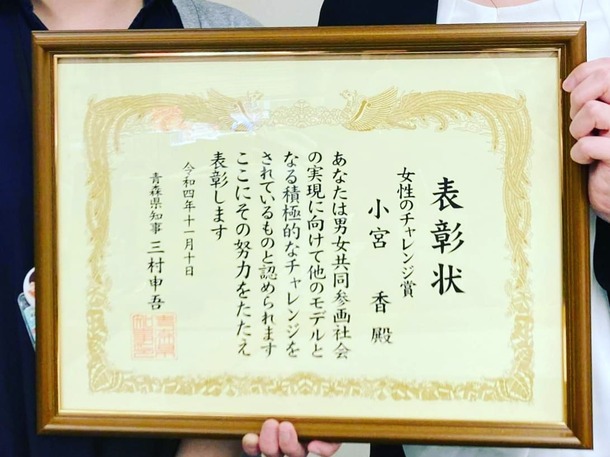 表彰状
女性のチャレンジ賞
小宮 香 殿
あなたは男女共同参画社会
の実現に向けて他のモデルと
なる積極的なチャレンジを
されているものと認められます
ここにその努力をたたえ
表彰します
令和四年十一月十日
青森県知事 三村申吾